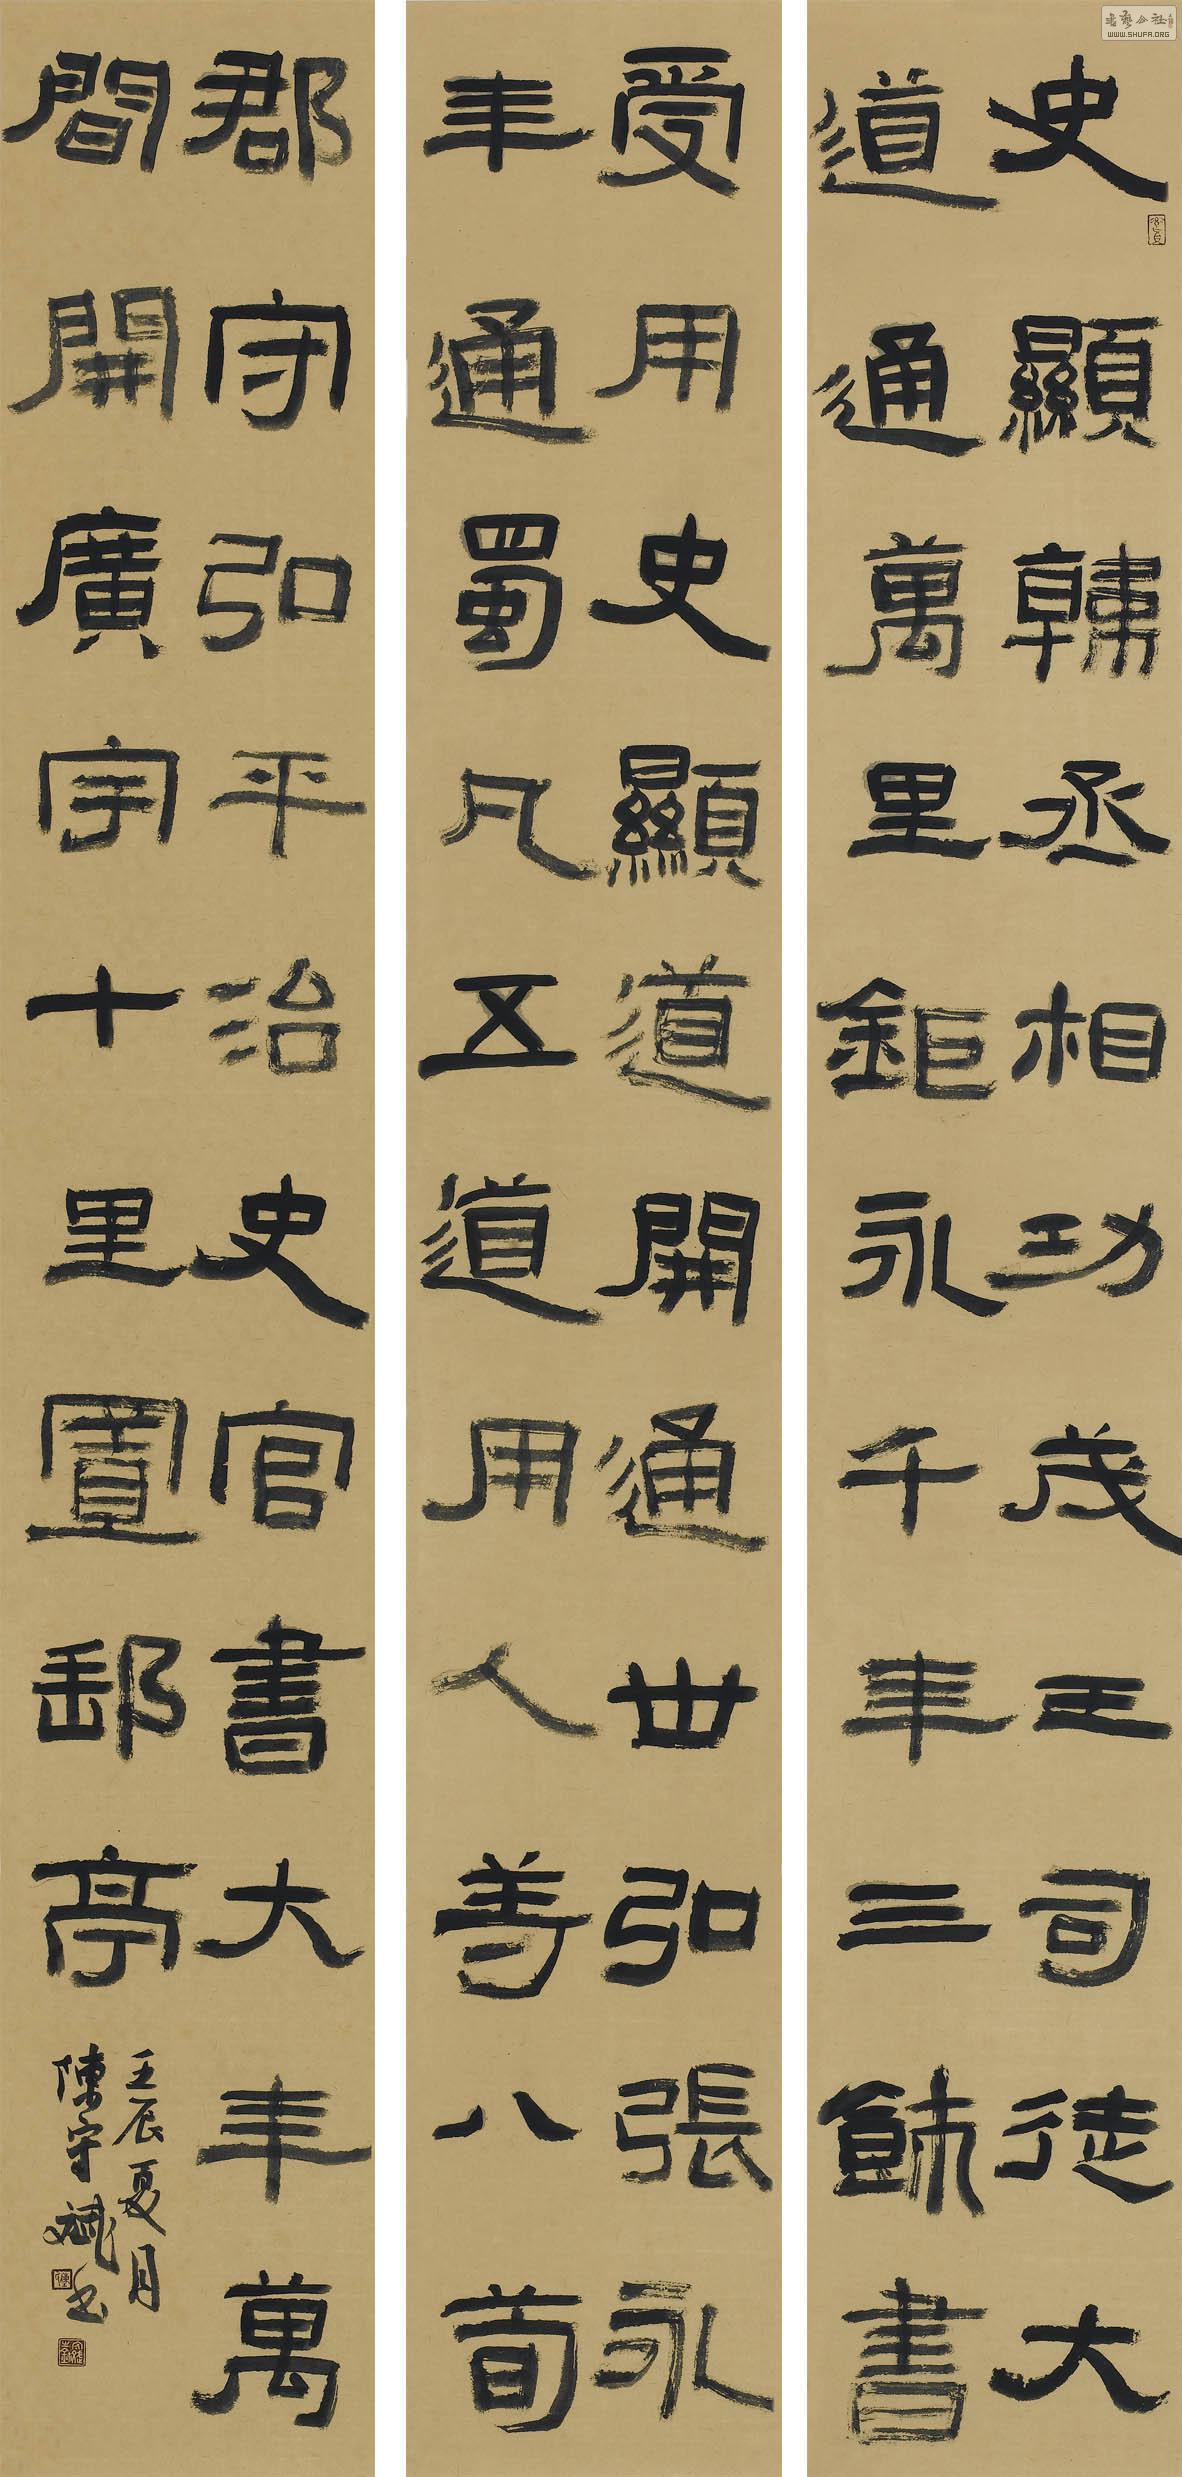 史顯韓丞相功茂王司徒大
道通萬里鉅永千年三餘書
受用史顯道開通世弘張永
年通蜀凡五道用人善八荀
郡守弘平治史官書大年萬
間開廣宇十里置郵亭
壬辰夏月
陳守斌书
书艺公社
WWW.SHUFA.ORG